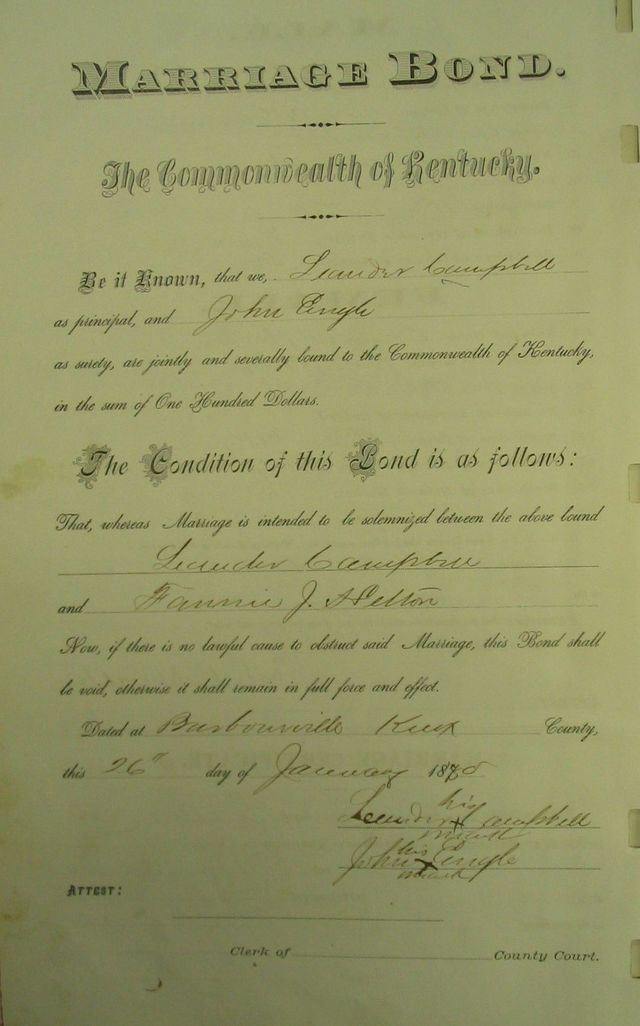 MARRIAGE BOND.
The Commonwealth of Kentucky.
Be it Known, that we, Leander Campbell
as principal, and John Engle
as surety, are jointly and severally bound to the Commonwealth of Kentucky,
in the sum of One Hundred Dollars.
The Condition of this Bond is as follows:
That, whereas Marriage is intended to be solemnized between the above bound
Leander Campbell
and Fannie J. Helton
Now, if there is no lawful cause to obstruct said Marriage, this Bond shall
be void, otherwise it shall remain in full force and effect.
Dated at Barbourville Knox County,
this 26" day of January
his
Leander X Campbell
mark
his
John X Engle
mark
ATTEST:
Clerk of County Court.